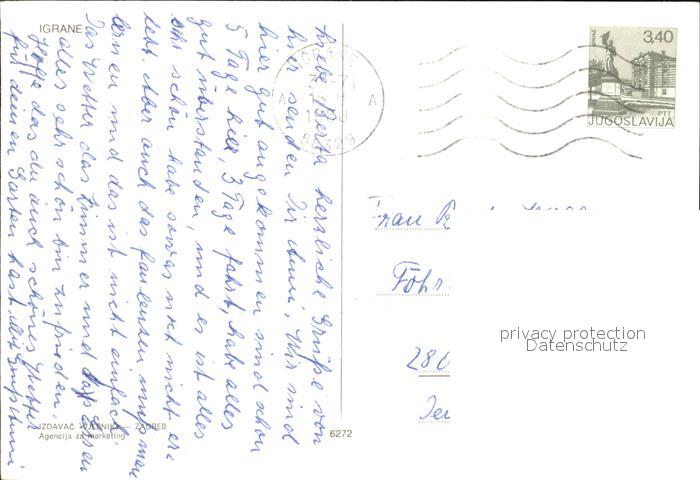 IGRANE
Liebe Berta herzliche Grüße von
hier senden Dir Anni, Wir sind
hier gut angekommen sind schon
5 Tage hier, 3 Tage fahrt, habe alles
gut überstanden, und es ist alles
sehr schön habe sowas noch nicht er=
lebt. Aber auch das faulenzen muß man
lernen und das ist nicht einfach
Das Wetter das Zimmer und das Essen
alles sehr schön bin zufrieden.
Hoffe das du auch schönes Wetter
für deinen Garten hast.
IZDAVAČ VJESNIK — ZAGREB
Agencija za marketing
6272
A
A
3,40
PTT
JUGOSLAVIJA
Frau
Föhr
280
privacy protection
Datenschutz